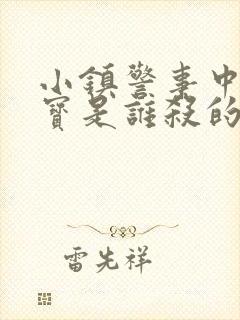 小鎮警事中
寳是誰殺的
雷先祥